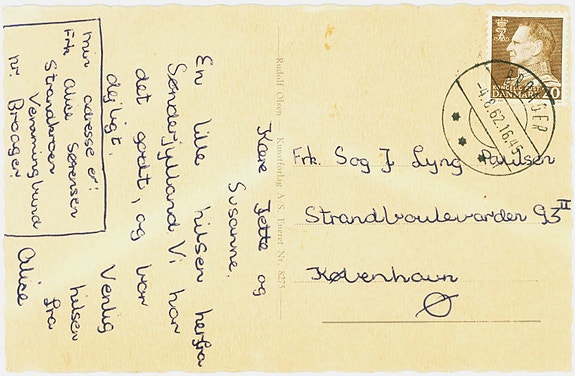 Kære Jette og
Susanne.
En lille hilsen herfra
Sønderjylland Vi har
det godt, og vor
dejligt.
Venlig
hilsen
fra
Alice
min adresse er:
Frk Alice Sørensen
Strandkroen
Vemmingbund
nr. Broager.
Rudolf Olsen Kunstforlag A/S. Eneret Nr. 8275
DANMARK
BROAGER
-4.8.62.16.45
Frk. S og J Lyng Paulsen
Strandboulevarden 93 II
København
Ø